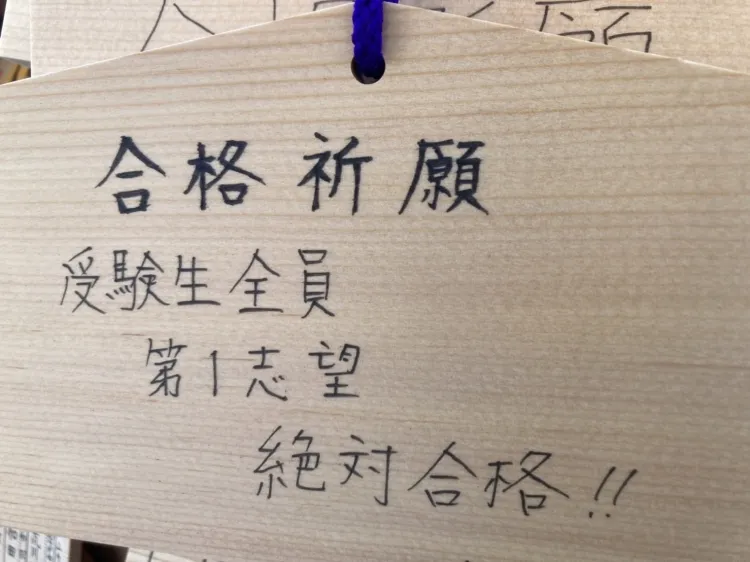 合格祈願
受験生全員
第1志望
絶対合格!!